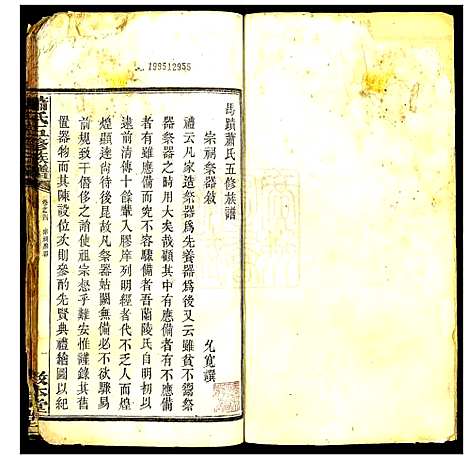 199512956
馬蹟蕭氏五修族譜
宗祠祭器敘
允寬譔
禮云凡家造祭器爲先養器爲後又云雖貧不鬻祭
器祭器之時用大矣哉顧其中有應備
者有雖應備而究不容驟備者吾蘭陵氏自明初以
逮前清傳十餘輩入膠庠列明經者代不乏人而煌
煌顯達尚待後昆故凡祭器姑闕無備必不欲驟易
前規致干僭侈之誚使祖宗怒乎難安惟謹錄其舊
置器物而其陳設位次則參酌先賢典禮繪圖以紀
蕭氏五修族譜
卷之四
一
敘本堂